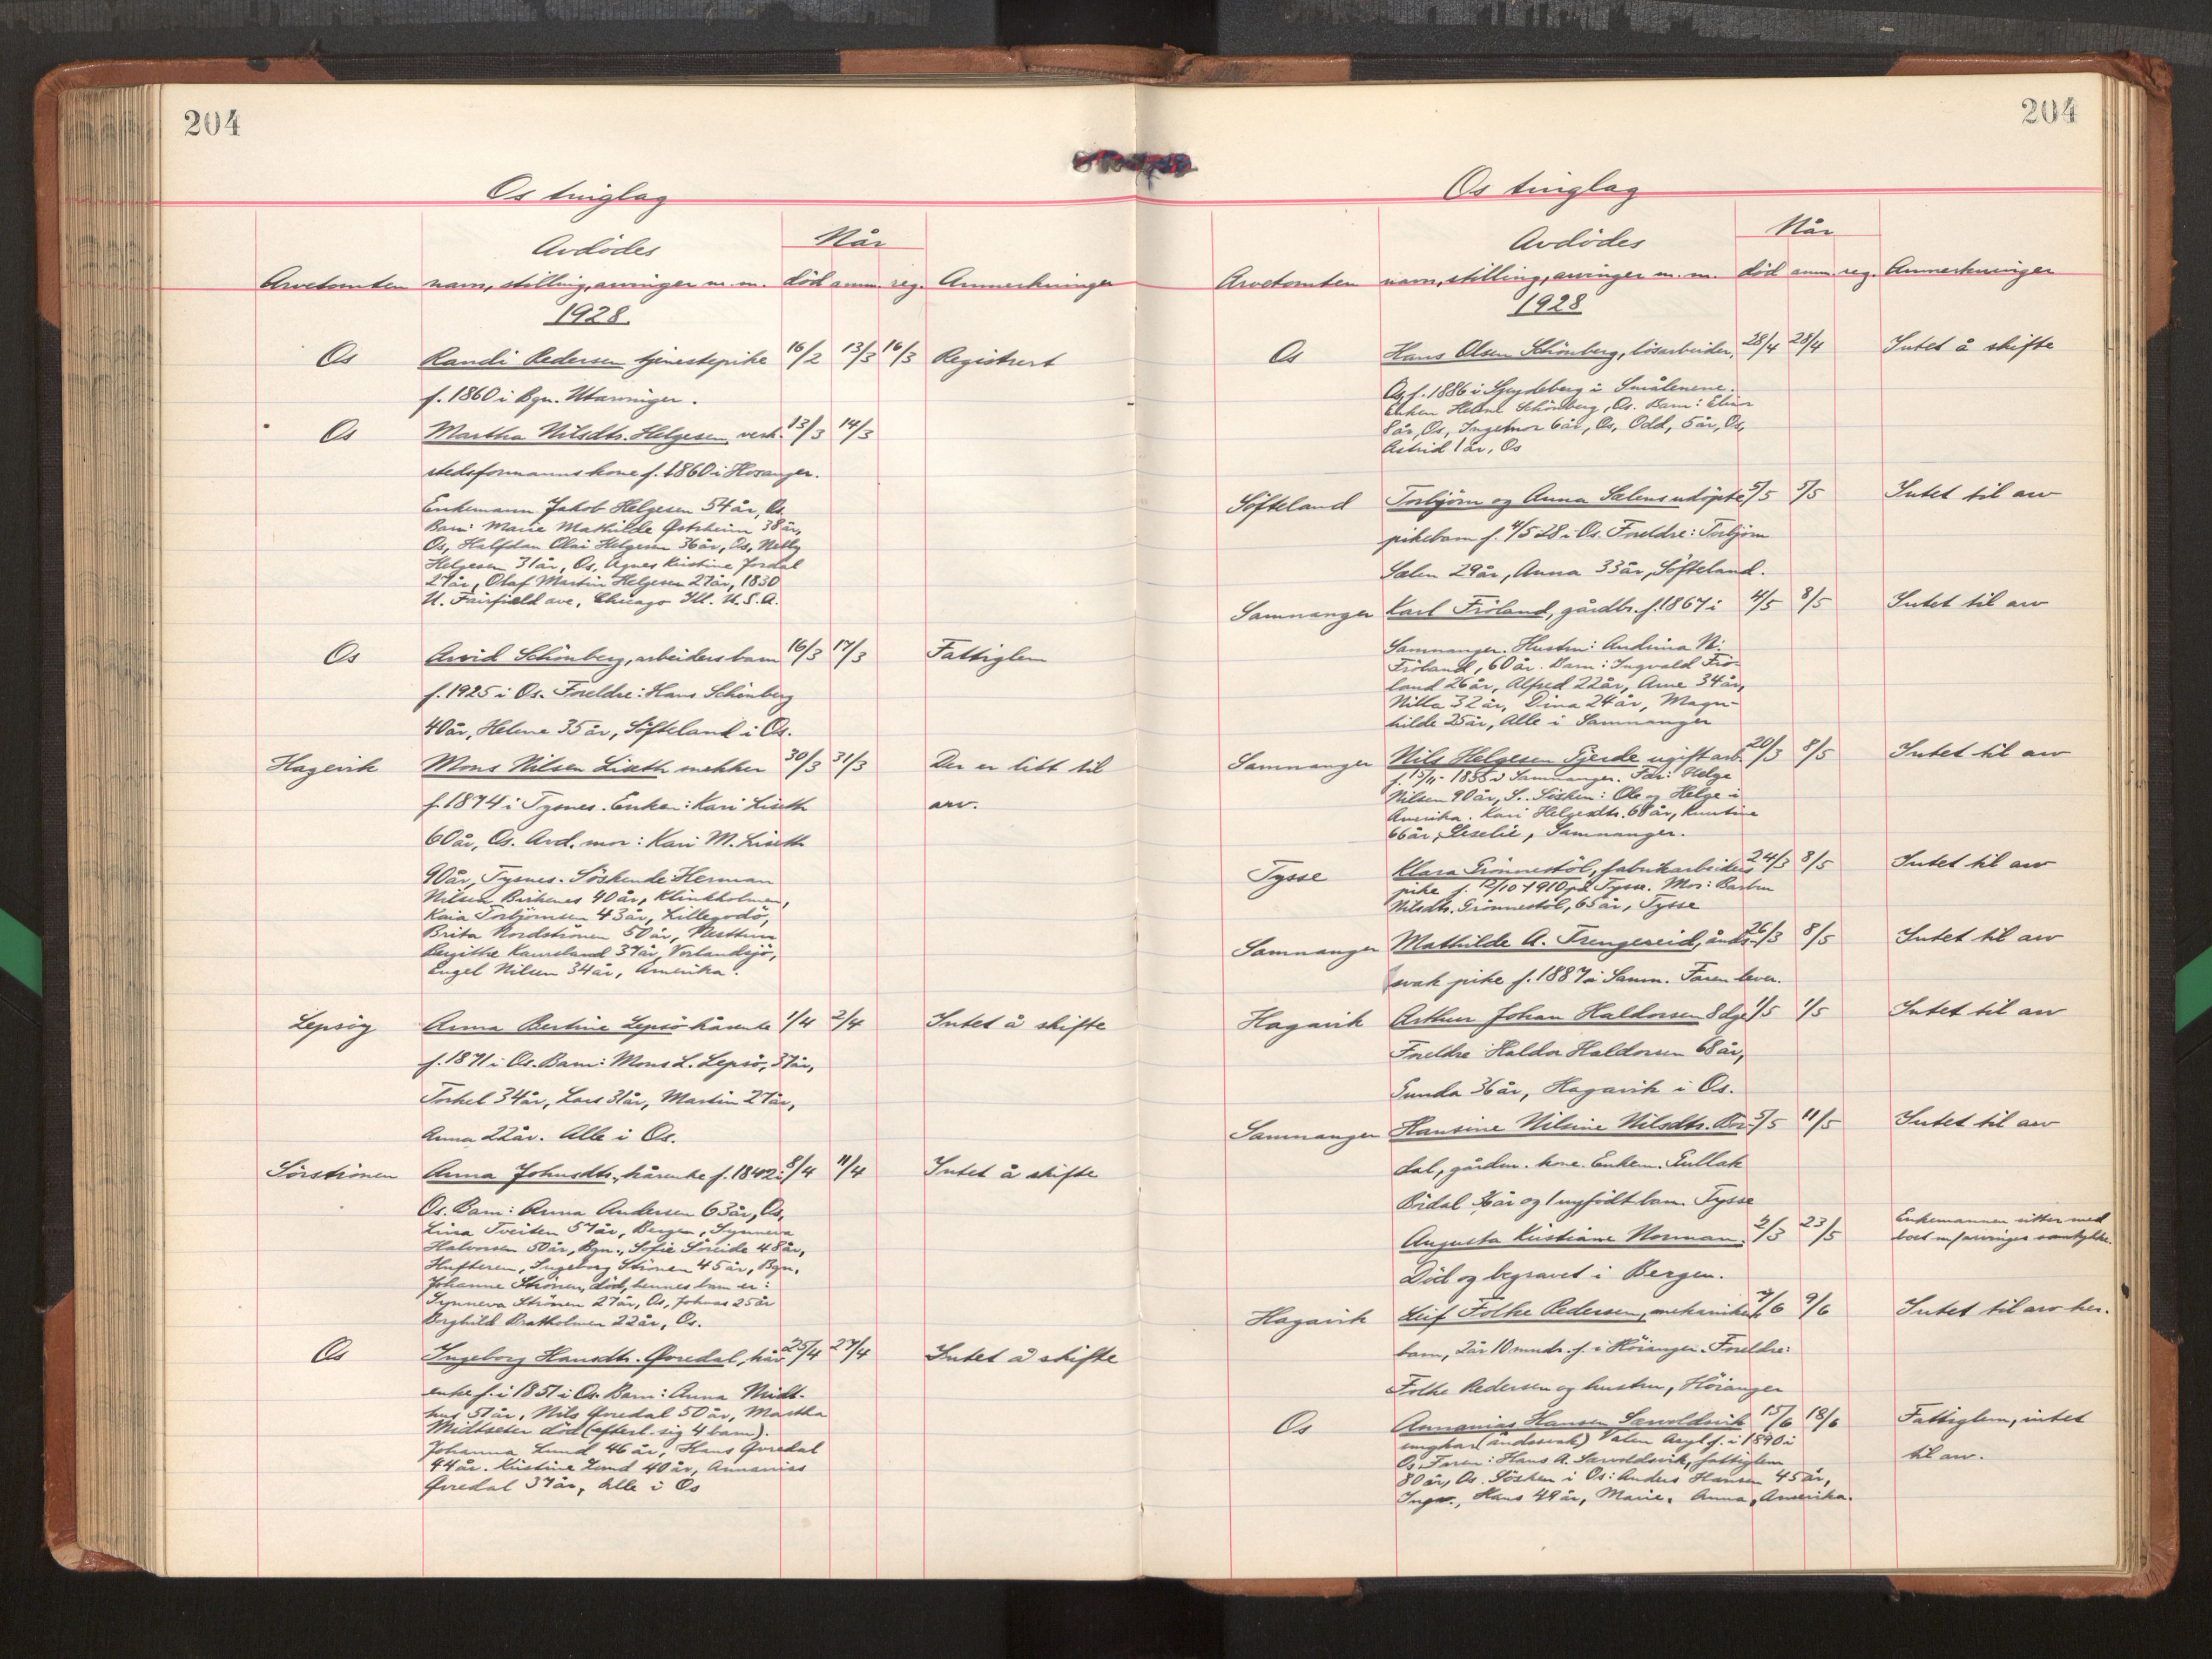 204
Os tinglag
Avdödes
Når
Arvetomten navn, stilling, arvinger m.m. död anm. reg. Anmerkninger
1928
Os Randi Pedersen tjenestepike 16/2 13/3 16/3 Registrert
f. 1860 i Bgn. Utarvinger.
Os Martha Nilsdtr. Helgesen, verk- 13/3 14/3
stedsformanns kone f. 1860 i Hosanger.
Enkemann Jakob Helgesen 54 år, Os.
Barn: Marie Mathilde 38 år,
Os, Halfdan Olai Helgesen 36 år, Os, Nelly
Helgesen 31 år, Os, Agnes Kristine Jordal
27 år, Olaf Martin Helgesen 27 år, 1830
N. Fairfield ave, Chicago Ill. U.S.A.
Os Arvid Schönberg, arbeiders barn 16/3 17/3 Fattiglem
f. 1925 i Os. Foreldre: Hans Schönberg
40 år, Helene 35 år, Söfteland i Os.
Hagevik Mons Nilsen Liseth snekker 30/3 31/3 Der er litt til
f. 1874 i Tysnes. Enke: Kari Liseth arv.
60 år, Os. Avd. mor: Kari M. Liseth
90 år, Tysnes. Söskende Herman
Nilsen Birkenes 40 år, Klinkholmen,
Kaia Torbjörnsen 43 år, Lillegodö,
Brita Nordströnen 50 år, Nesttun
Bergitte 37 år,
Engel Nilsen 34 år, Amerika.
Lepsöy Anna Bertine Lepsö kårenke 1/4 2/4 Intet å skifte
f. 1871 i Os. Barn: Mons L. Lepsö, 37 år,
Torkel 34 år, Lars 31 år, Martin 27 år,
Anna 22 år. Alle i Os.
Sörströnen Anna Johnsdtr., kårenke f. 1842 i 8/4 11/4 Intet å skifte
Os. Barn: Anna Andersen 63 år, Os,
Lina Tveiten 57 år, Bergen, Synneva
Halvorsen 50 år, Bgn., Sofie Söreide 48 år,
Hufteren, Ingeborg Strönen 45 år, Bgn,
Johanne Strönen, död, hennes barn er:
Synneva Strönen 27 år, Os, Johnas 25 år
Borghild Bratholmen 22 år, Os.
Os Ingeborg Hansdtr. Övredal, kår- 25/4 27/4 Intet å skifte
enke f. i 1851 i Os. Barn: Anna Midt-
hus 51 år, Nils Övredal 50 år, Martha
Midtseter död (efterl. sig 4 barn).
Johanna Lund 46 år, Hans Övredal
44 år. Kristine Lund 40 år, Annanias
Övredal 37 år, Alle i Os
204
Os tinglag
Avdödes
Når
Arvetomten navn, stilling, arvinger m.m. död anm. reg. Anmerkninger
1928
Os Hans Olsen Schönberg, lösarbeider, 28/4 28/4 Intet å skifte
Os, f. 1886 i Spydeberg i Smålenene.
Enken Helene Schönberg, Os. Barn:
8 år, Os, Ingemor 6 år, Os, Odd, 5 år, Os,
Astrid 1 år, Os
Söfteland Torbjörn og Anna Salens udöpte 5/5 5/5 Intet til arv
pikebarn f. 4/5 28 i Os. Foreldre: Torbjörn
Salen 29 år, Anna 33 år, Söfteland.
Samnanger Karl Fröland, gårdbr. f. 1867 i 4/5 8/5 Intet til arv
Samnanger. Hustru: Andrina N.
Fröland, 60 år. Barn: Ingvald Frö-
land 26 år, Alfred 22 år, Arne 34 år,
Nilla 32 år, Dina 24 år, Magn-
hilde 25 år, Alle i Samnanger
Samnanger Nils Helgesen Gjerde ugift arb. 20/3 8/5 Intet til arv
f. 15/11 - 1855 i Samnanger. Far: Helge
Nilsen 90 år, S.. Sösken: Ole og Helge i
Amerika. Kari Helgesdtr. 68 år,
66 år, Samnanger.
Tysse Klara Grönnestöl, fabrikarbeiders 24/3 8/5 Intet til arv
pike f. 12/10 1910 på Tysse. Mor: Barbra
Nilsdtr. Grönnestöl, 65 år, Tysse
Samnanger Mathilde A. Trengereid, ånds- 26/3 8/5 Intet til arv
svak pike f. 1887 i Samn. Faren lever.
Hagavik Arthur Johan Haldorsen 8 dge 1/5 1/5 Intet til arv
Foreldre Haldor Haldorsen 68 år,
Gunda 36 år, Hagavik i Os.
Samnanger Hansine Nilsine Nilsdtr. Bör- 5/5 11/5 Intet til arv
dal, gårdm. kone. Enkem. Gullak
Bördal 36 år og 1 nyfödt barn. Tysse
Augusta Kristiane Norman. 2/3 23/5 Enkemannen sitter med
boet m/arvinges samtykke.
Död og begravet i Bergen.
Hagavik Leif Folke Pedersen, mekanikers 7/6 9/6 Intet til arv her.
barn, 2 år 10 mndr. f. i Höianger. Foreldre:
Folke Pedersen og hustru, Höianger
Os Annanias Hansen Sarvoldsvik 15/6 18/6 Fattiglem, intet
ungkar (åndssvak) Valen Asyl f. i 1890 i til arv.
Os. Faren: Hans A. Sarvoldsvik, fattiglem
80 år, Os. Sösken i Os: Anders Hansen 45 år,
Hans 49 år, Marie, Anna, Amerika.